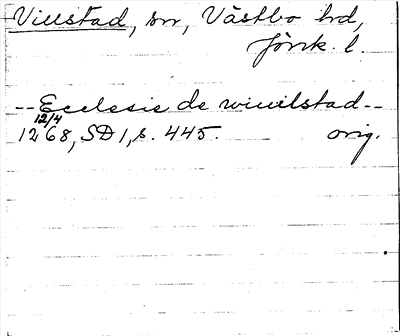 Villstad, sn, Västbo hd,
Jönk. l.
-- Ecclesie de wiuilstad --
12/4
1268, SD 1, s. 445. orig.